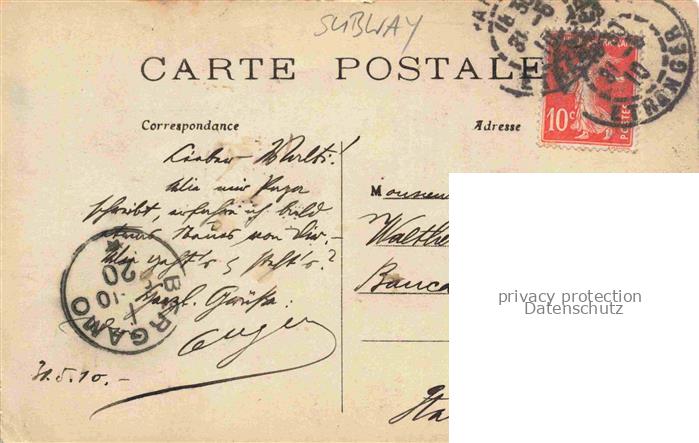 SUBWAY
CARTE POSTALE
Correspondance
Adresse
10c
POSTES
ETRANGER
Lieber Walti!
Wie mir Papa
schreibt, erfahre ich bald
etwas Neues von Dir. –
Wie geht's & steht's?
Herzl. Grüsse:
Eugen
31.5.10. –
BERGAMO
20
Monsieur
Walthe
Banca
Ita
privacy protection
Datenschutz